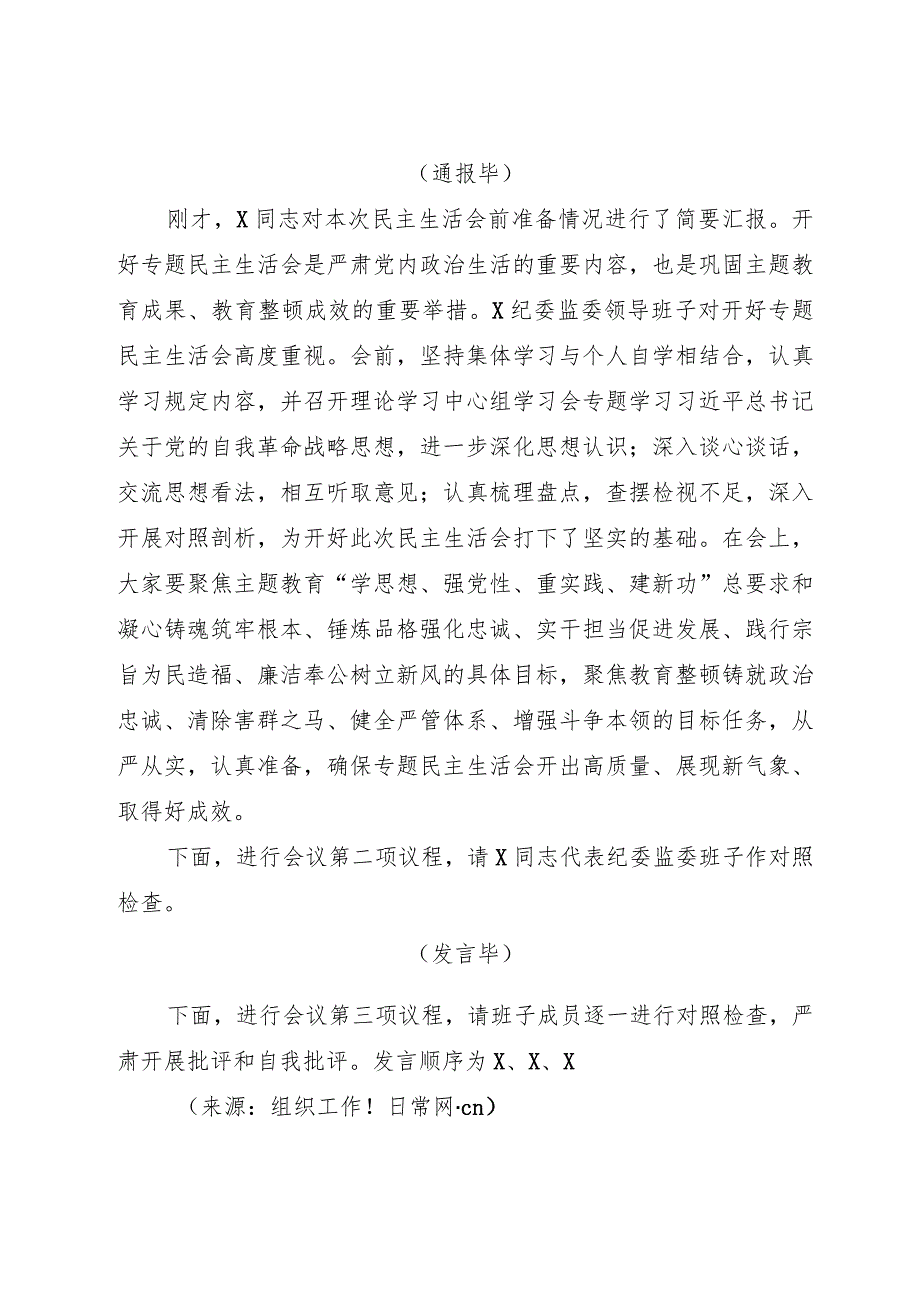 （通报毕）
刚才，X 同志对本次民主生活会前准备情况进行了简要汇报。开
好专题民主生活会是严肃党内政治生活的重要内容，也是巩固主题教
育成果、教育整顿成效的重要举措。X 纪委监委领导班子对开好专题
民主生活会高度重视。会前，坚持集体学习与个人自学相结合，认真
学习规定内容，并召开理论学习中心组学习会专题学习习近平总书记
关于党的自我革命战略思想，进一步深化思想认识；深入谈心谈话，
交流思想看法，相互听取意见；认真梳理盘点，查摆检视不足，深入
开展对照剖析，为开好此次民主生活会打下了坚实的基础。在会上，
大家要聚焦主题教育“学思想、强党性、重实践、建新功”总要求和
凝心铸魂筑牢根本、锤炼品格强化忠诚、实干担当促进发展、践行宗
旨为民造福、廉洁奉公树立新风的具体目标，聚焦教育整顿铸就政治
忠诚、清除害群之马、健全严管体系、增强斗争本领的目标任务，从
严从实，认真准备，确保专题民主生活会开出高质量、展现新气象、
取得好成效。
下面，进行会议第二项议程，请 X 同志代表纪委监委班子作对照
检查。
（发言毕）
下面，进行会议第三项议程，请班子成员逐一进行对照检查，严
肃开展批评和自我批评。发言顺序为 X、X、X
（来源：组织工作！日常网·cn）